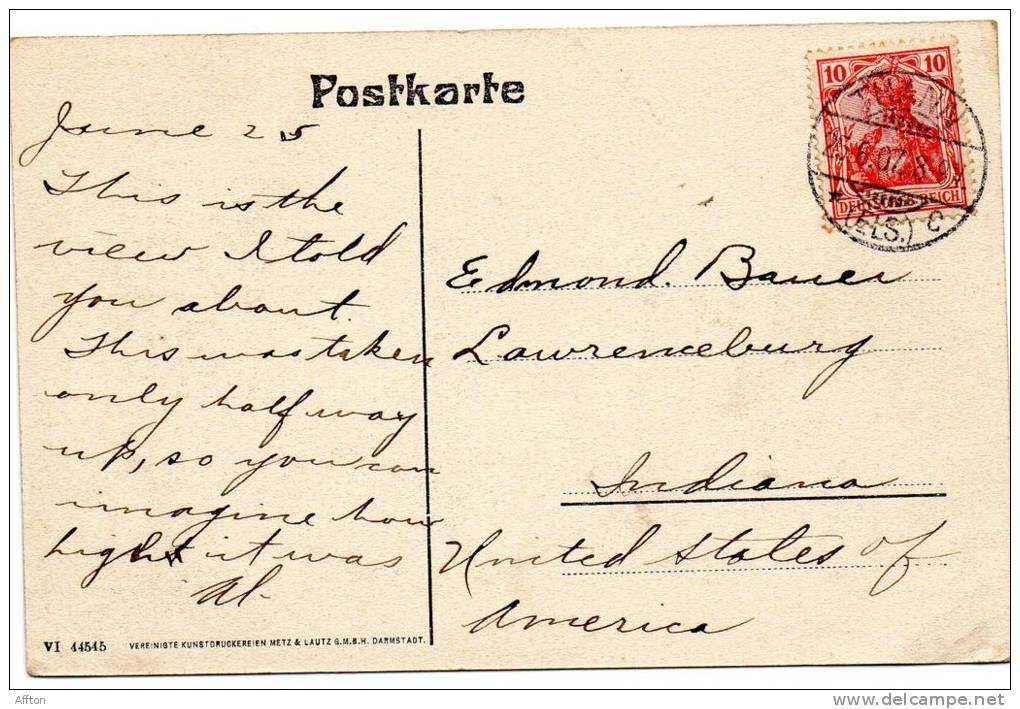 Postkarte
June 25
This is the
view I told
you about.
This was taken
only half way
up, so you can
imagine how
high it was
Al-
10 10
DEUTSCHES REICH
25.6.07. 8-9V
* (ELS.) C
Edmond. Bauer
Lawrenceburg
Indiana
United States of
America
VI 44545 VEREINIGTE KUNSTDRUCKEREIEN METZ & LAUTZ G.M.B.H. DARMSTADT.
Affton
www.delcampe.net